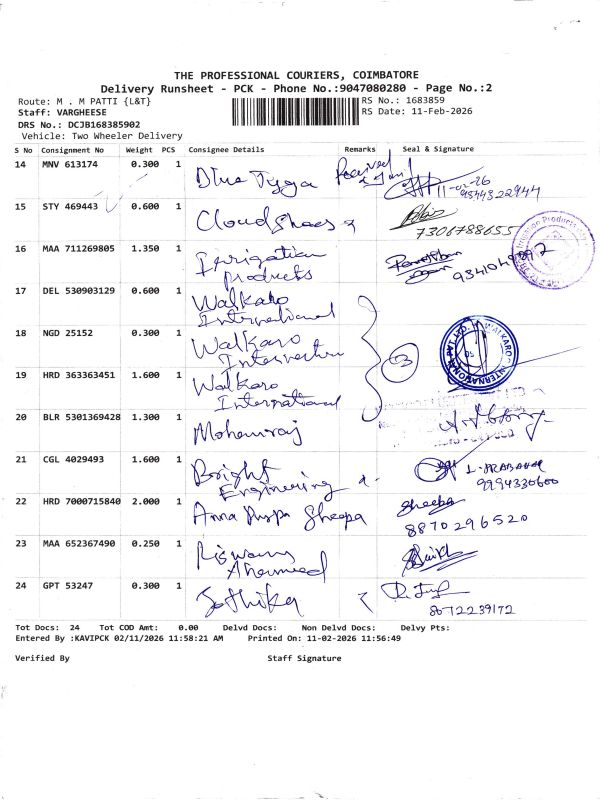 THE PROFESSIONAL COURIERS, COIMBATORE
Delivery Runsheet - PCK - Phone No.:9047080280 - Page No.:2
Route: M . M PATTI {L&T}
RS No.: 1683859
Staff: VARGHEESE
RS Date: 11-Feb-2026
DRS No.: DCJB168385902
Vehicle: Two Wheeler Delivery
S No Consignment No Weight PCS Consignee Details Remarks Seal & Signature
14 MNV 613174 0.300 1 Blue Tyga Received
11-02-26
9344322944
15 STY 469443 0.600 1 Cloud Shoes
7306788655
16 MAA 711269805 1.350 1 Irrigation
Products
17 DEL 530903129 0.600 1 Walkaro
International
18 NGD 25152 0.300 1 Walkaro 3
19 HRD 363363451 1.600 1 Walkaro
International
20 BLR 5301369428 1.300 1 Mohanraj
21 CGL 4029493 1.600 1 Bright
Engineering
9994330600
22 HRD 7000715840 2.000 1 Anna Puspa Sheepa Sheepa
8870296520
23 MAA 652367490 0.250 1
24 GPT 53247 0.300 1 Sathika
8672239172
Tot Docs: 24 Tot COD Amt: 0.00 Delvd Docs: Non Delvd Docs: Delvy Pts:
Entered By :KAVIPCK 02/11/2026 11:58:21 AM Printed On: 11-02-2026 11:56:49
Verified By Staff Signature